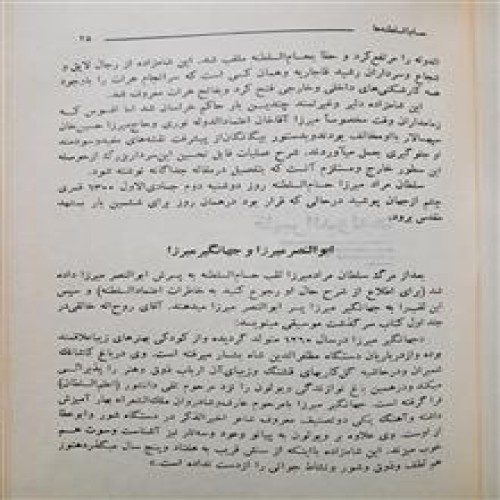 حسام‌السلطنه‌ها ۲۵
الدوله را مرتفع کرد و خطاً بحسام‌السلطنه ملقب شد. این شاهزاده از رجال لایق و
شجاع و سرداران رشید قاجاریه و همان کسی است که سرانجام هرات را باوجود
همه کارشکنی‌های داخلی و خارجی فتح کرد و بفاتح هرات معروف شد.
این شاهزاده دلیر و غیرتمند چندین بار حاکم خراسان شد اما افسوس که
زمامداران وقت مخصوصاً میرزا آقاخان اعتمادالدوله نوری و حاج میرزا حسین‌خان
سپهسالار با او مخالف بودند و بدستور بیگانگان از پیشرفت نقشه‌های مفید و سودمند
او جلوگیری بعمل میآوردند. شرح عملیات قابل تحسین این سردار بزرگ از حوصله
این سطور خارج و مستلزم آنست که بتفصیل در مقاله جداگانه نوشته شود.
سلطان مراد میرزا حسام‌السلطنه روز دوشنبه دوم جمادی‌الاول ۱۳۰۰ قمری
چشم از جهان پوشید در حالی که قرار بود در همان روز برای ششمین بار بمشهد
مقدس برود.
ابوالنصر میرزا و جهانگیر میرزا
بعد از مرگ سلطان مراد میرزا لقب حسام‌السلطنه به پسرش ابوالنصر میرزا داده
شد (برای اطلاع از شرح حال او رجوع کنید به خاطرات اعتمادالسلطنه) و سپس
این لقب را به جهانگیر میرزا پسر ابوالنصر میرزا میدهند. آقای روح‌اله خالقی در
جلد اول کتاب سرگذشت موسیقی مینویسد:
«جهانگیر میرزا در سال ۱۲۶۰ متولد گردیده و از کودکی بهنرهای زیبا علاقمند
بوده و از درباریان دستگاه مظفرالدین شاه بشمار میرفته است. وی در باغ
شمیران و در حاشیه گل‌کاریهای قشنگ و زیبای آن ارباب ذوق و هنر را پذیرائی
میکند و در همین باغ نوازندگی ویولون را نزد مرحوم تقی دانشور (اعلم‌السلطان)
فرا گرفته است. جهانگیر میرزا با مرحوم عارف و شادروان ملک‌الشعراء بهار آمیزش
داشته و آهنگ یکی دو تصنیف معروف شاعر اخیرالذکر در دستگاه شور و ابوعطا
از اوست. وی علاوه بر ویولون به پیانو و عود و سه‌تار نیز آشناست و صوت هم
خوب میزند. این شاهزاده با اینکه از سنش قریب به هفتاد و پنج سال میگذرد هنوز
هم لطف و ذوق و شور و نشاط جوانی را از دست نداده است.»